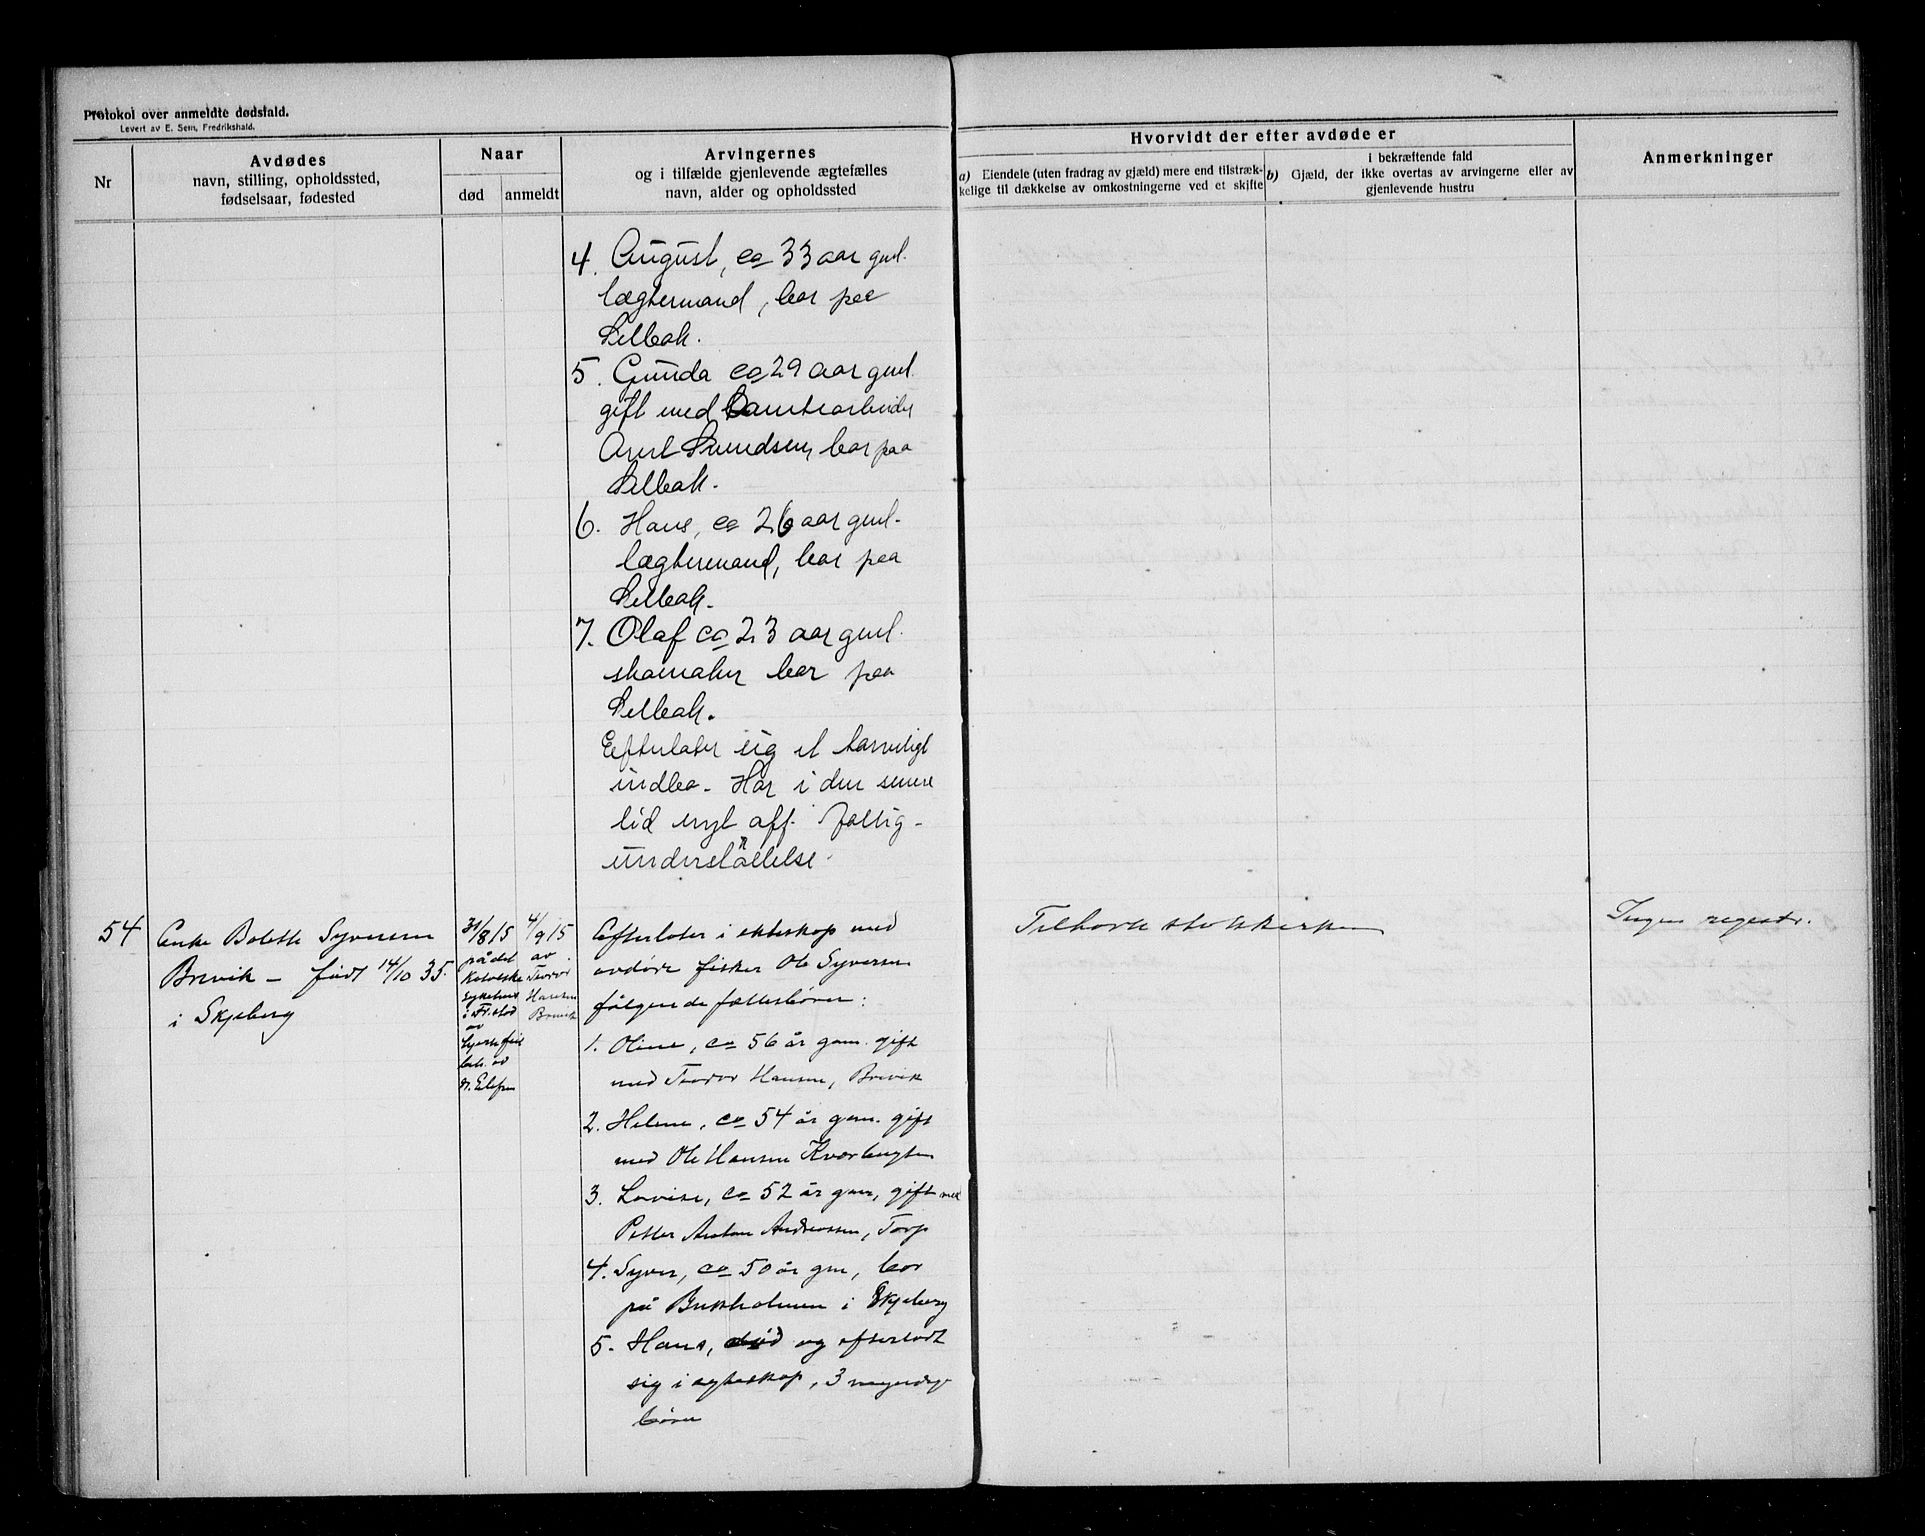 Protokol over anmeldte dødsfald.
Levert av E. Sem, Fredrikshald.
Nr
Avdødes
navn, stilling, opholdssted,
fødselsaar, fødested
Naar
død
anmeldt
Arvingernes
og i tilfælde gjenlevende ægtefælles
navn, alder og opholdssted
Hvorvidt der efter avdøde er
a) Eiendele (uten fradrag av gjæld) mere end tilstræk-
kelige til dækkelse av omkostningerne ved et skifte
i bekræftende fald
b) Gjæld, der ikke overtas av arvingerne eller av
gjenlevende hustru
Anmerkninger
4. August, ca 33 aar gml.
lægtermand, bor paa
Selbak.
5. Gunda ca 29 aar gml.
gift med
Axel Svendsen, bor paa
Selbak.
6. Hans, ca 26 aar gml.
lægtermand, bor paa
Selbak.
7. Olaf ca 23 aar gml.
skomaker bor paa
Selbak.
Efterlater sig et tarveligt
indbo. Har i den senere
tid nyt off. fattig-
understøttelse.
54
Enke Bolette Syversen
Brevik - født 14/10 35.
i Skjeberg
31/8 15
på det
Katolske
sykehus
i Fr.stad
av
hjertefeil
beh. av
dr. Eilefsen
4/9 15
av
Teodor
Hansen
Brevik
Efterlater i ekteskap med
avdøde fisker Ole Syversen
følgende fællesbørn:
1. Oline, ca 56 år gam. gift
med Teodor Hansen, Brevik
2. Helene, ca 54 år gam. gift
med Ole Hansen
3. Lovise, ca 52 år gam, gift med
Petter Anton Andreassen, Torp
4. Syver, ca 50 år gm, bor
på Buskholmen i Skjeberg
5. Hans, død og efterlodt
sig i egteskap, 3 myndige
børn
Tilhørte stoskkerken
Ingen registr.